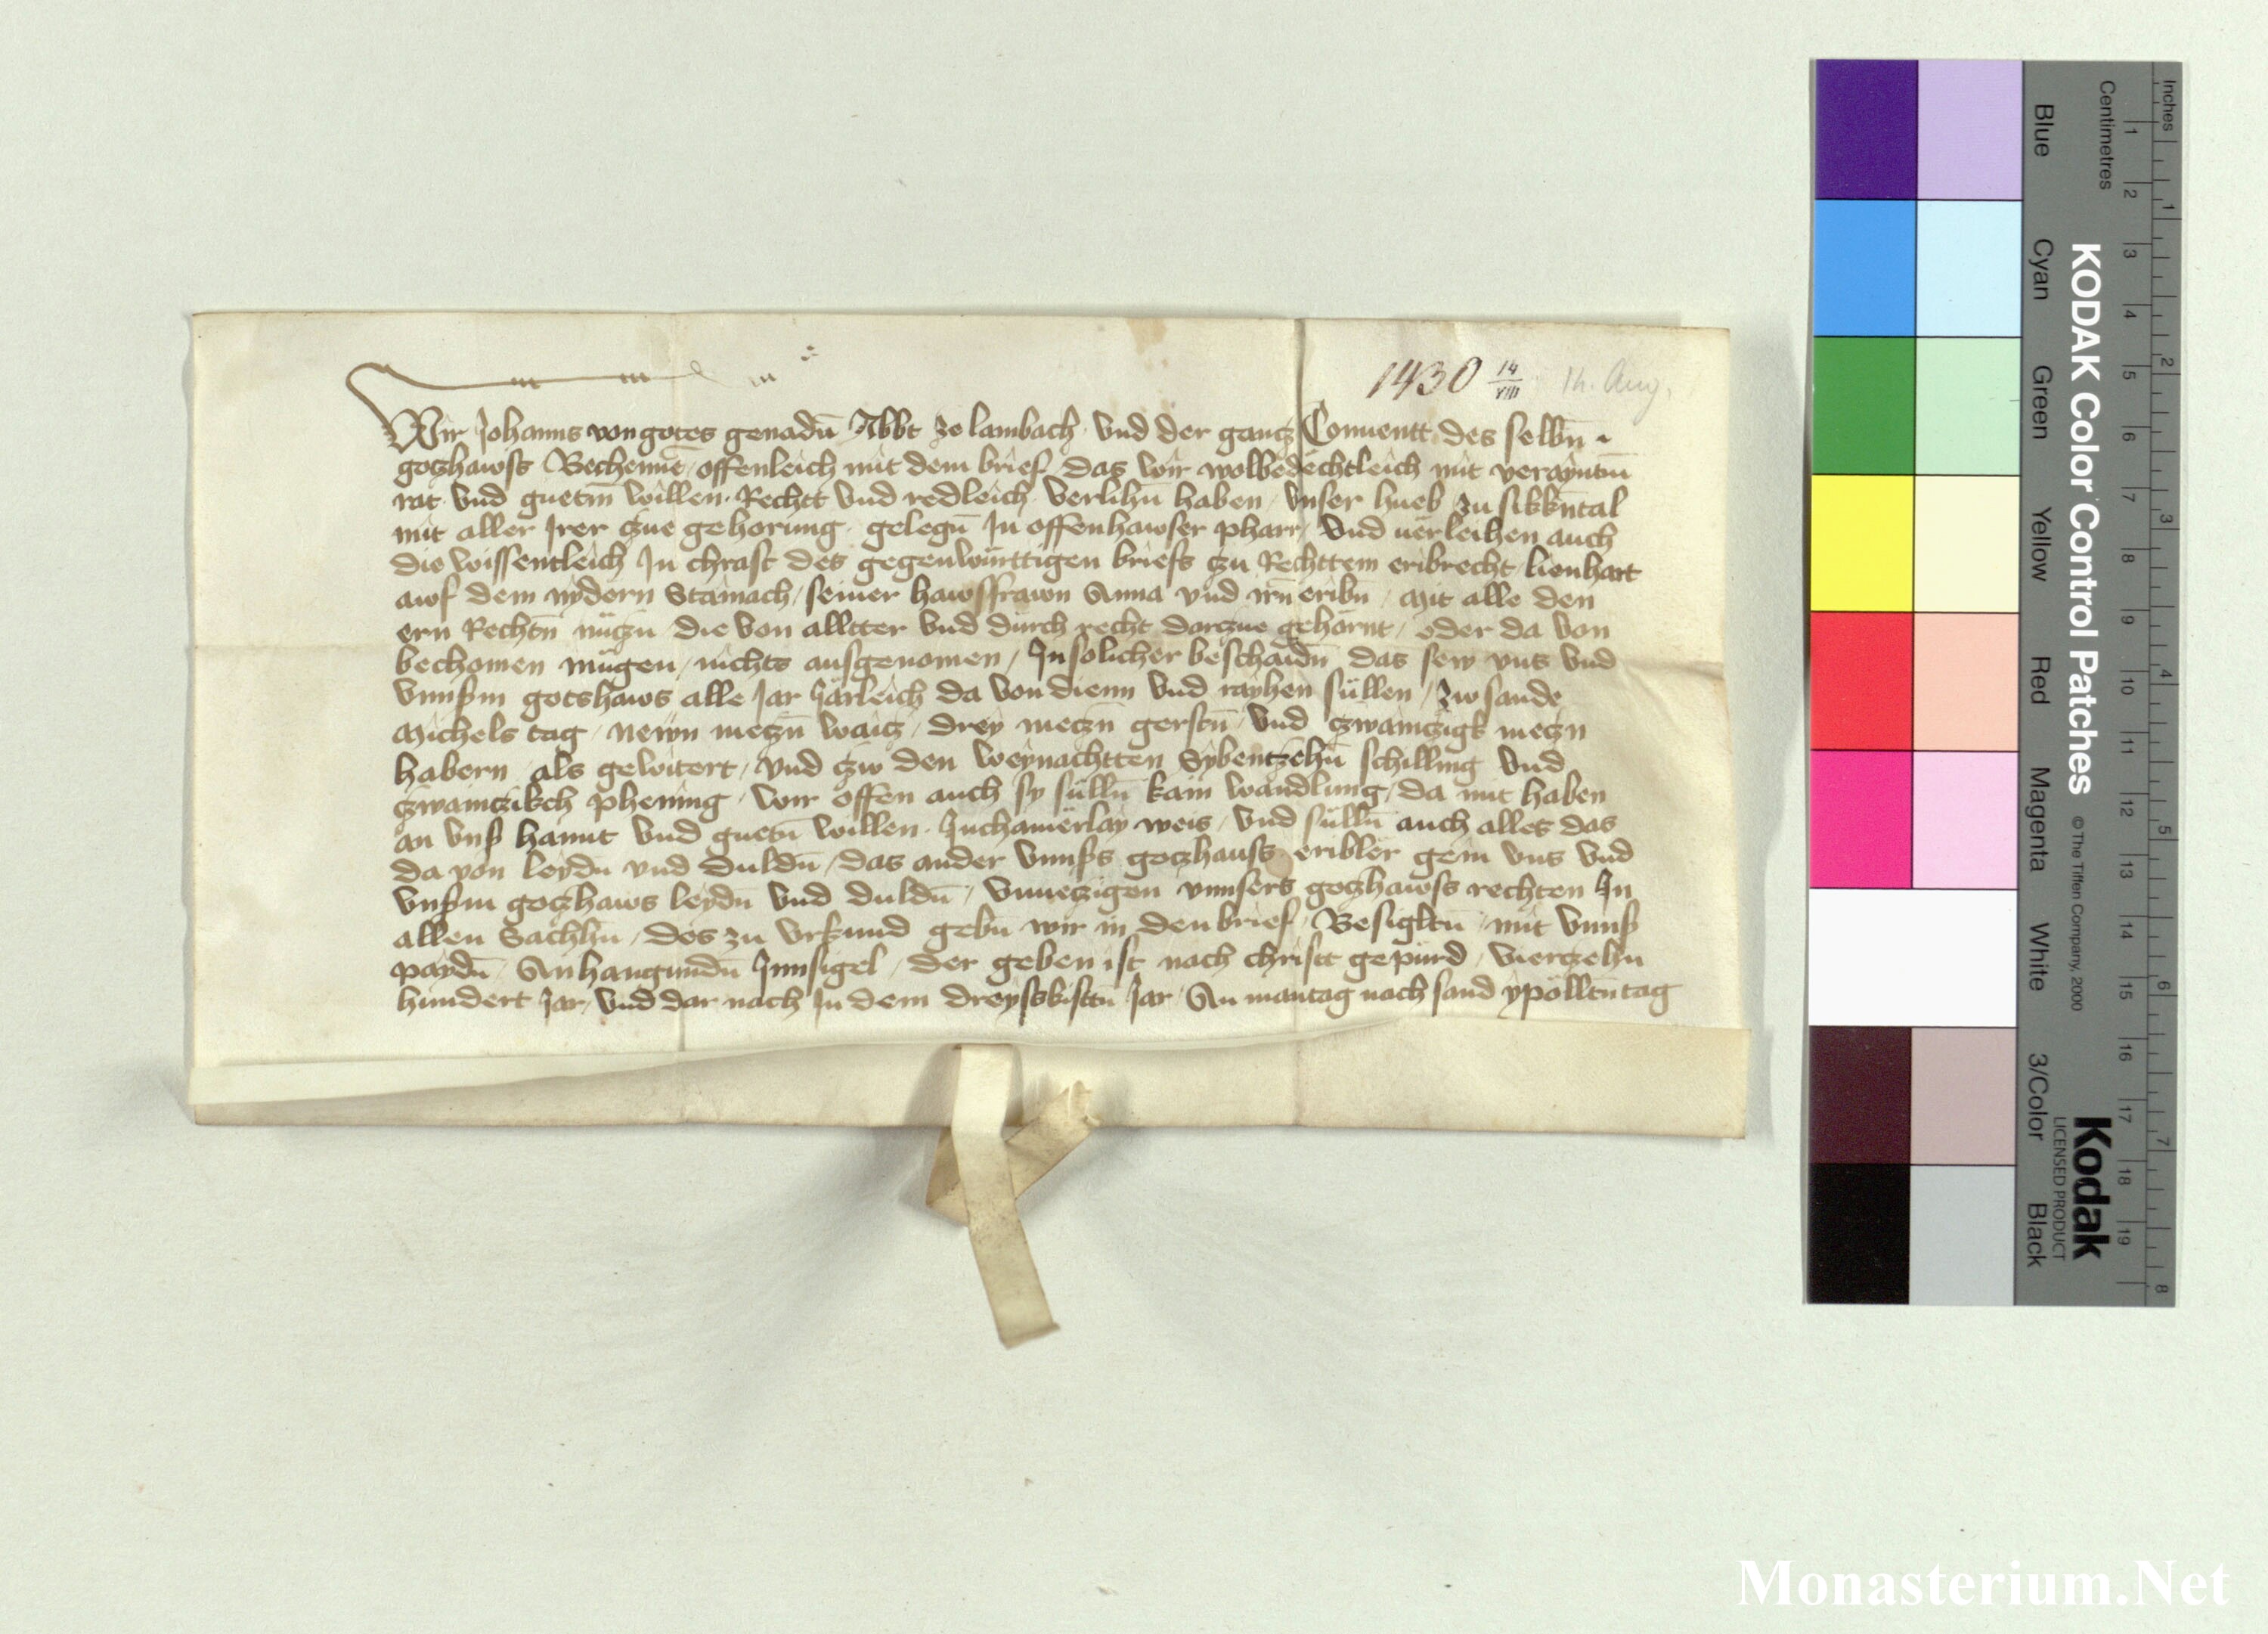 1430 14/VIII 14. Aug.
Wir Johanns von gotes genadn̄ Abbt ze lambach vnd der gancz Conuentt des selbn̄
gotzhawss Bechennē offenleich mit dem brief das wir wolbedechtleich mit verayntm̄
rat vnd guetm̄ willen Rechtt vnd redleich verlihn̄ haben vnser hueb zu sikkn̄tal
mit aller Irer czue gehorung gelegn̄ In offenhawser pharr vnd uerleihen auch
die wissentleich In chraft des gegenwürttigen briefs czu Rechttem eribrecht lienhart
awf dem nydern Stainach seiner hawsfrawn Anna vnd irn̄ eribn̄ Mit alle den
ern Rechtn̄ nüczn̄ die von alltter vnd durch recht darczue gehörnt oder da von
bechomen mügen nichts ausgenomen In solicher beschaidn̄ das sew vns vnd
vnnsm gotshaws alle Jar Järleich da von dienn vnd rayhen süllen zw sande
Michels tag Newn meczn̄ waicz drey meczn̄ gerstn̄ vnd czwainczigk meczn
habern als gewitert vnd czw den weynachtten Sybentzehn̄ schilling vnd
czwainczikch phening wir offen auch sy sülln̄ kain wandlung da mit haben
an vns hannt vnd guetn̄ willen Inchainerlay weis vnd sülln̄ auch alles das
da von leydn̄ vnd duldn̄ das ander vnnss gotzhauss eribler gein vns vnd
vnsm gotzhaws leydn̄ vnd duldn̄ vnuerczigen vnnsers gotzhawss rechten In
allen Sachhn̄ des zu vrkund gebn̄ wir in den brief Besigltn̄ mit vnns
paydn̄ Anhangundn̄ Innsigel der geben ist nach christ gepurd vierczehn
hundert Jar vnd dar nach In dem dreysskistn̄ Jar An mantag nach sand ypölltn tag
Inches
Centimetres
KODAK Color Control Patches © The Tiffen Company, 2000
Kodak
LICENSED PRODUCT
Blue Cyan Green Yellow Red Magenta White 3/Color Black
1 2 3 4 5 6 7 8 9 10 11 12 13 14 15 16 17 18 19
1 2 3 4 5 6 7 8
Monasterium.Net